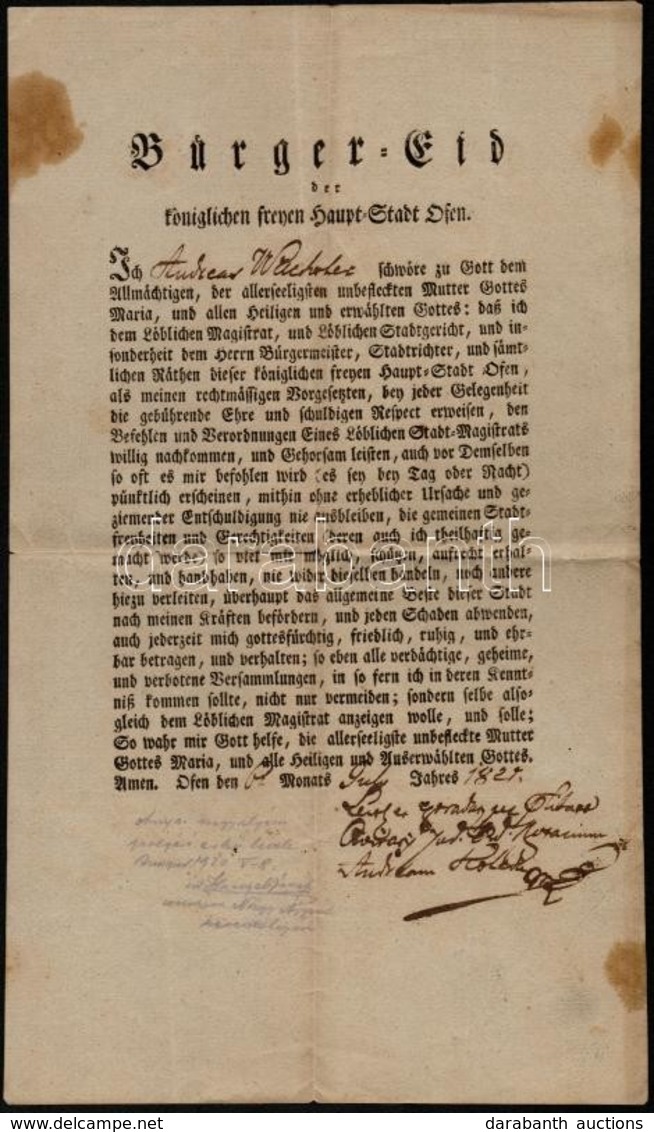 Bürger-Eid
der
königlichen freyen Haupt-Stadt Ofen.
Ich Andreas schwöre zu Gott dem
Allmächtigen, der allerseeligsten unbefleckten Mutter Gottes
Maria, und allen Heiligen und erwählten Gottes: daß ich
dem Löblichen Magistrat, und Löblichen Stadtgericht, und in-
sonderheit dem Herrn Bürgermeister, Stadtrichter, und sämt-
lichen Räthen dieser königlichen freyen Haupt-Stadt Ofen,
als meinen rechtmässigen Vorgesetzten, bey jeder Gelegenheit
die gebührende Ehre und schuldigen Respect erweisen, den
Befehlen und Verordnungen Eines Löblichen Stadt-Magistrats
willig nachkommen, und Gehorsam leisten, auch vor Demselben
so oft es mir befohlen wird (es sey bey Tag oder Nacht)
pünktlich erscheinen, mithin ohne erheblicher Ursache und ge-
ziemender Entschuldigung nie ausbleiben, die gemeinen Stadt-
freyheiten und Gerechtigkeiten (deren auch ich theilhaftig ge-
macht werde) so viel mir möglich, schützen, aufrecht erhal-
ten, und handhaben, nie wider dieselben handeln, noch andere
hiezu verleiten, überhaupt das allgemeine Beste dieser Stadt
nach meinen Kräften befördern, und jeden Schaden abwenden,
auch jederzeit mich gottesfürchtig, friedlich, ruhig, und ehr-
bar betragen, und verhalten; so eben alle verdächtige, geheime,
und verbotene Versammlungen, in so fern ich in deren Kennt-
niß kommen sollte, nicht nur vermeiden; sondern selbe also-
gleich dem Löblichen Magistrat anzeigen wolle, und solle;
So wahr mir Gott helfe, die allerseeligste unbefleckte Mutter
Gottes Maria, und alle Heiligen und Auserwählten Gottes.
Amen. Ofen den Monats July Jahres 1821.
Andream
darabanth
darabanth auctions